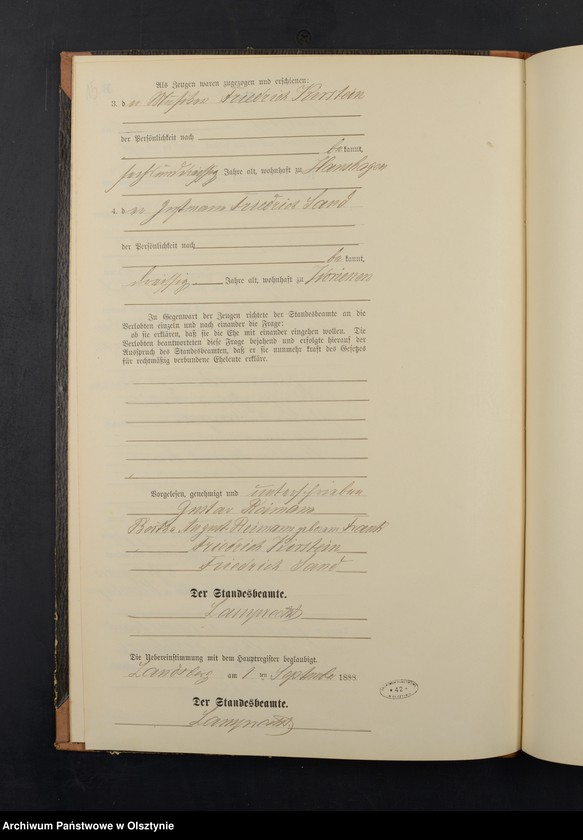 Als Zeugen waren zugezogen und erschienen:
3. der Friedrich Kirstein
der Persönlichkeit nach
bekannt,
sechsunddreißig Jahre alt, wohnhaft zu Hanshagen
4. der Instmann Friedrich Sand
der Persönlichkeit nach
bekannt,
dreissig Jahre alt, wohnhaft zu
In Gegenwart der Zeugen richtete der Standesbeamte an die
Verlobten einzeln und nach einander die Frage:
ob sie erklären, daß sie die Ehe mit einander eingehen wollen. Die
Verlobten beantworteten diese Frage bejahend und erfolgte hierauf der
Ausspruch des Standesbeamten, daß er sie nunmehr kraft des Gesetzes
für rechtmäßig verbundene Eheleute erkläre.
Vorgelesen, genehmigt und unterschrieben
Gustav Reimann
August Reimann geborene
Friedrich Kirstein
Friedrich Sand
Der Standesbeamte.
Lamprecht
Die Uebereinstimmung mit dem Hauptregister beglaubigt.
Landsberg am 1 ten September 1888.
Der Standesbeamte.
Lamprecht
* 42 *
Archiwum Państwowe w Olsztynie